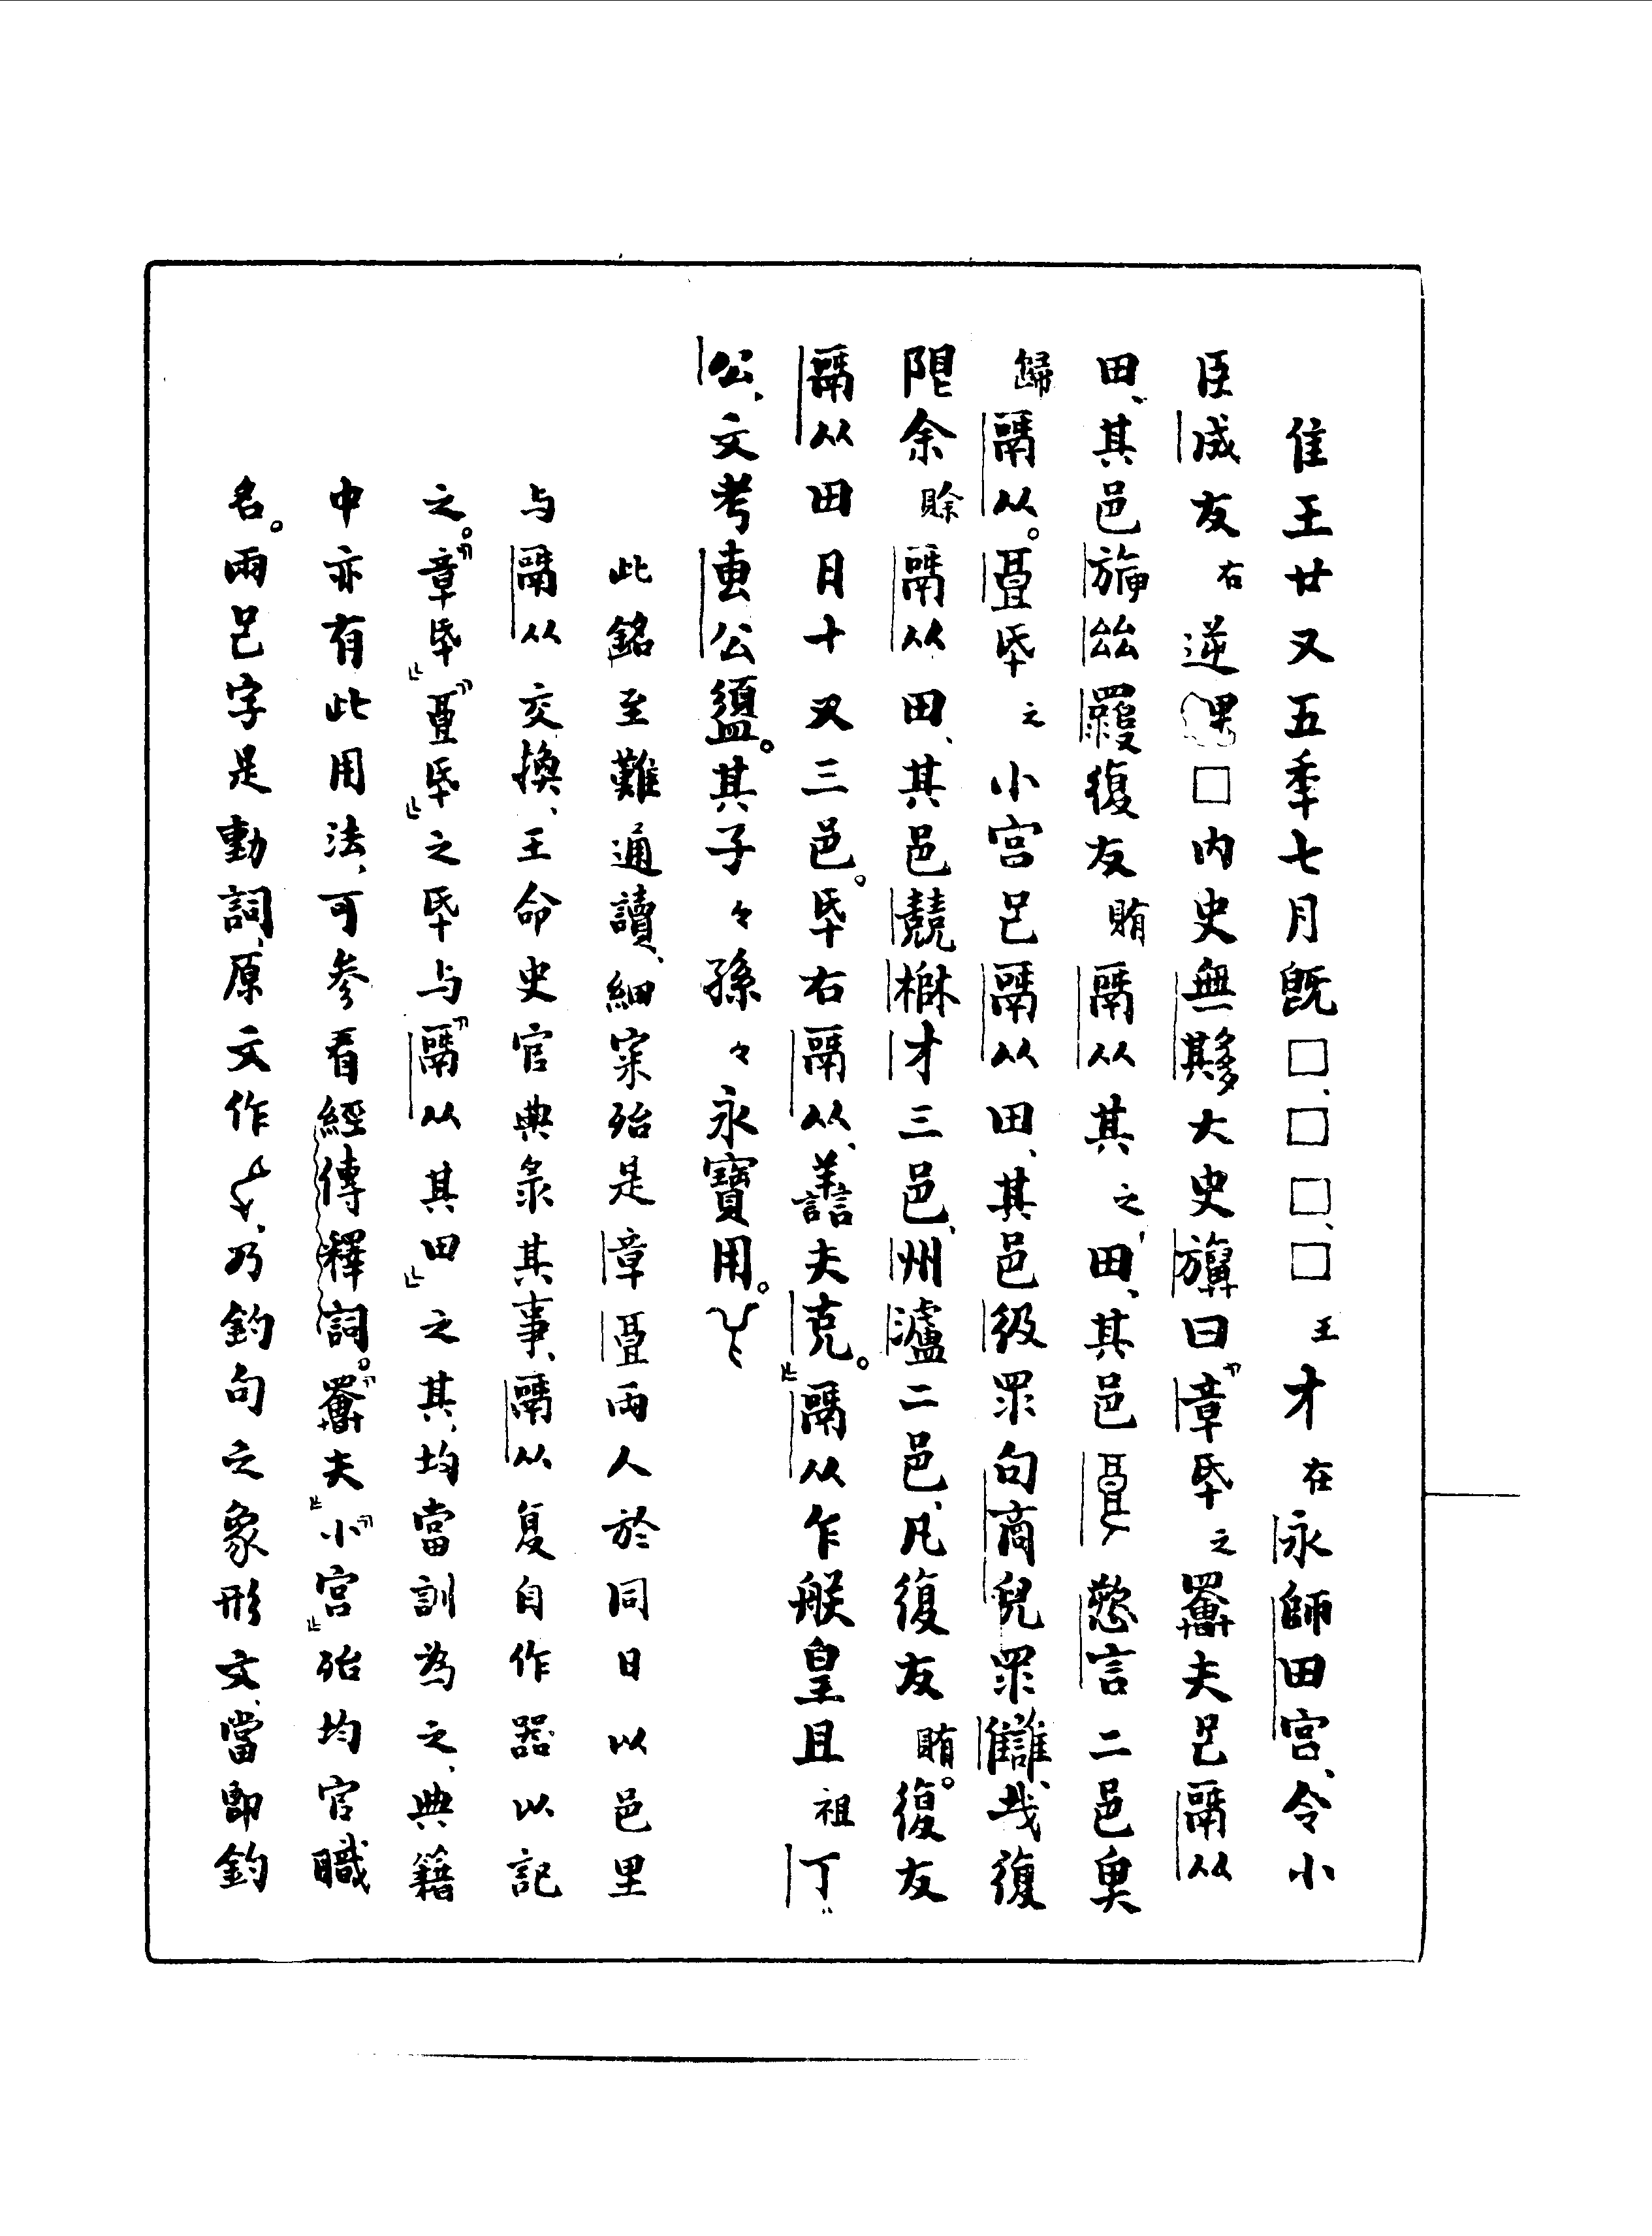 隹王廿又五年七月既□、□□、□王才在永師田宮、令小
臣成友右逆□□內史無㝬大史旟曰『章氒之夫㠯鬲从
田、其邑復友賄鬲从其之田、其邑言二邑臾
歸鬲从。氒之小宮㠯鬲从田、其邑彶眔句商兒眔讎、戈復
限余賒鬲从田、其邑競㮤才三邑、州瀘二邑、凡復友賄。復友
鬲从田日十又三邑。氒右鬲从、譱夫克。』鬲从乍朕皇且祖丁
公、文考叀公盨。其子々孫々永寶用。
此銘至難通讀、細案殆是章兩人於同日以邑里
与鬲从交換、王命史官典彔其事、鬲从复自作器以記
之。『章氒』『氒』之氒与『鬲从其田』之其、均當訓為之、典籍
中亦有此用法、可參看經傳釋詞。『夫』『小宮』殆均官職
名。兩㠯字是動詞、原文作、乃鈞句之象形文、當即鈞